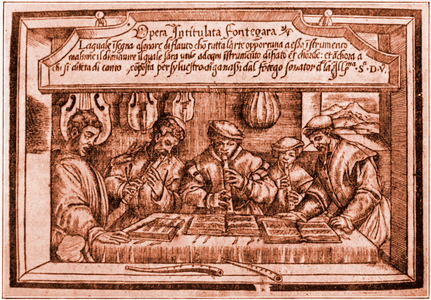 Opera Intitulata Fontegara
Laquale īsegna a sonare di flauto chō tutta l'arte opportuna a esso īstrumento
massime il diminuire il quale sara utile ad ogni īstrumento di fiato et chorde: et āchora a
chi si diletta di canto, cōposta per sylvestro di ganassi dal fōtego sonator d'la Ill.ma S.a D.V.